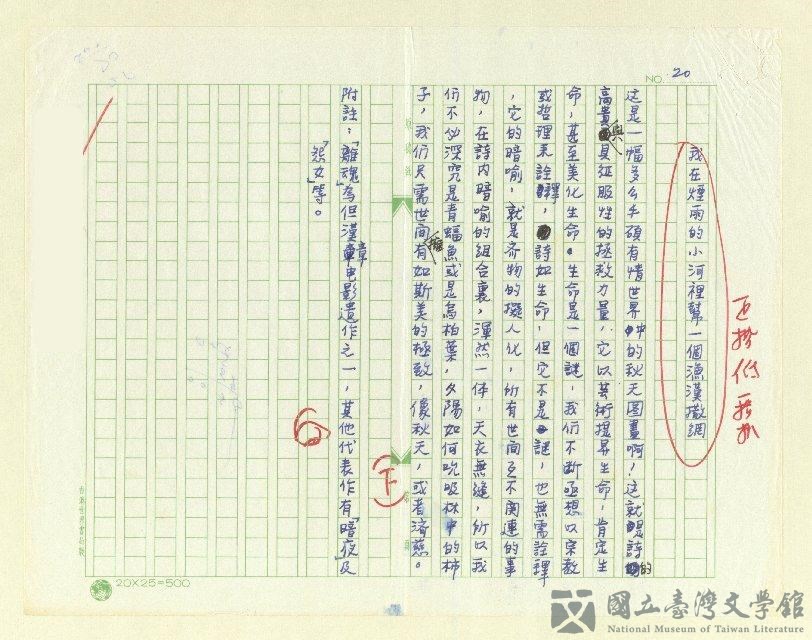 NO. 20
我在煙雨的小河裡幫一個漁漢撒網
這是一幅多么手頭有情世界中的秋天圖畫啊！這就是詩的
高貴與具征服性的拯救力量，它以芸術提昇生命，肯定生
命，甚至美化生命。生命是一個謎，我們不斷亟想以宗教
或哲理來詮釋，詩如生命，但它不是謎，也無需詮釋
，它的暗喻，就是齐物的擬人化，所有世間互不関連的事
物，在詩內暗喻的組合裏，渾然一体，天衣無縫，所以我
们不必深究是青蝠魚或是烏柏葉，夕陽如何吮吸林中的柿
子，我们只需世間有如斯美的極致，像秋天，或者濟慈。
附註：「離魂」為但漢章電影遺作之一，其他代表作有「暗夜」及
「怨女」等。
下
6
20X25=500
國立臺灣文學館
National Museum of Taiwan Literature